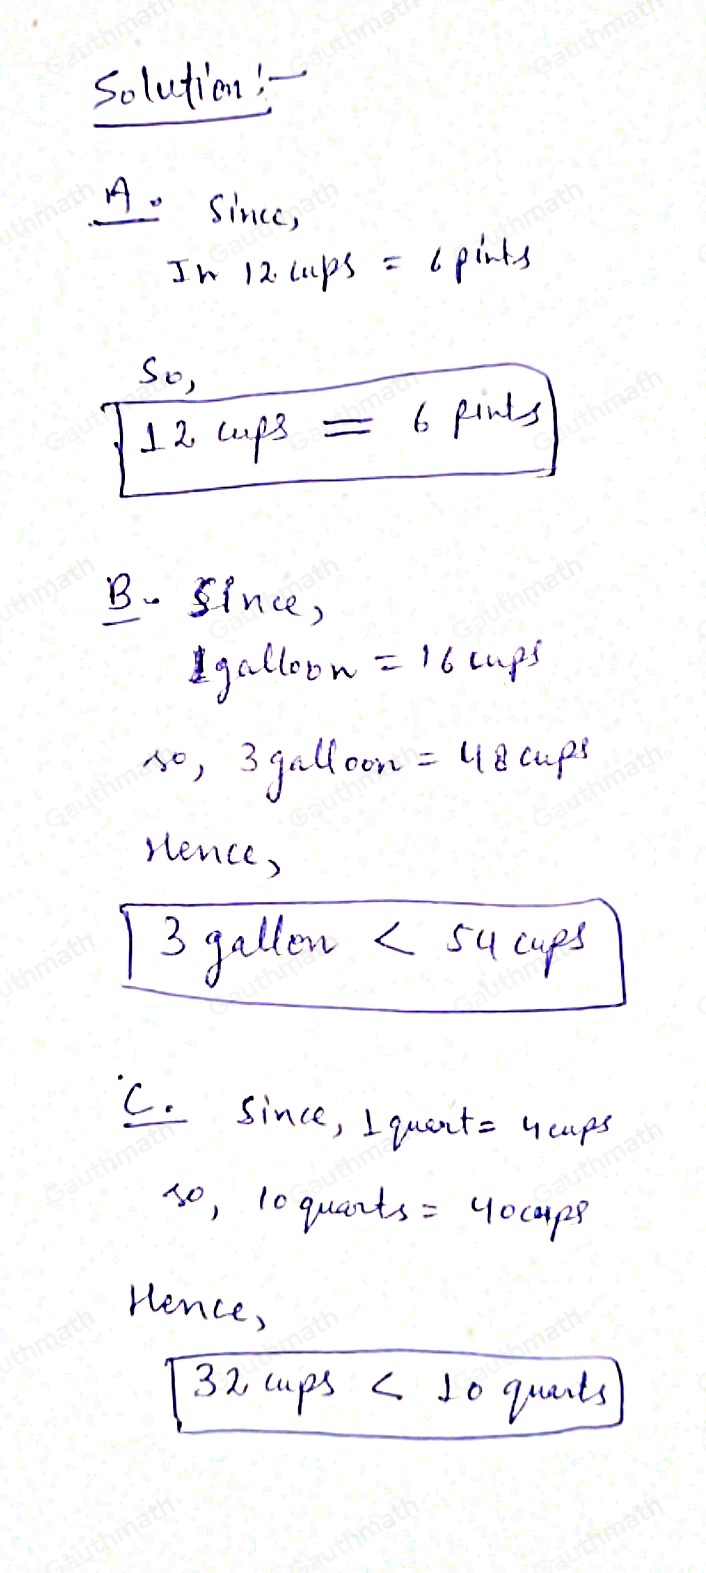 Solution:-
A. Since,
In 12 cups = 6 pints
So,
12 cups = 6 pints
B. Since,
1 galloon = 16 cups
so, 3 galloon = 48 cups
Hence,
3 gallon < 54 cups
C. Since, 1 quart = 4 cups
so, 10 quarts = 40 cups
Hence,
32 cups < 10 quarts
Gauthmath